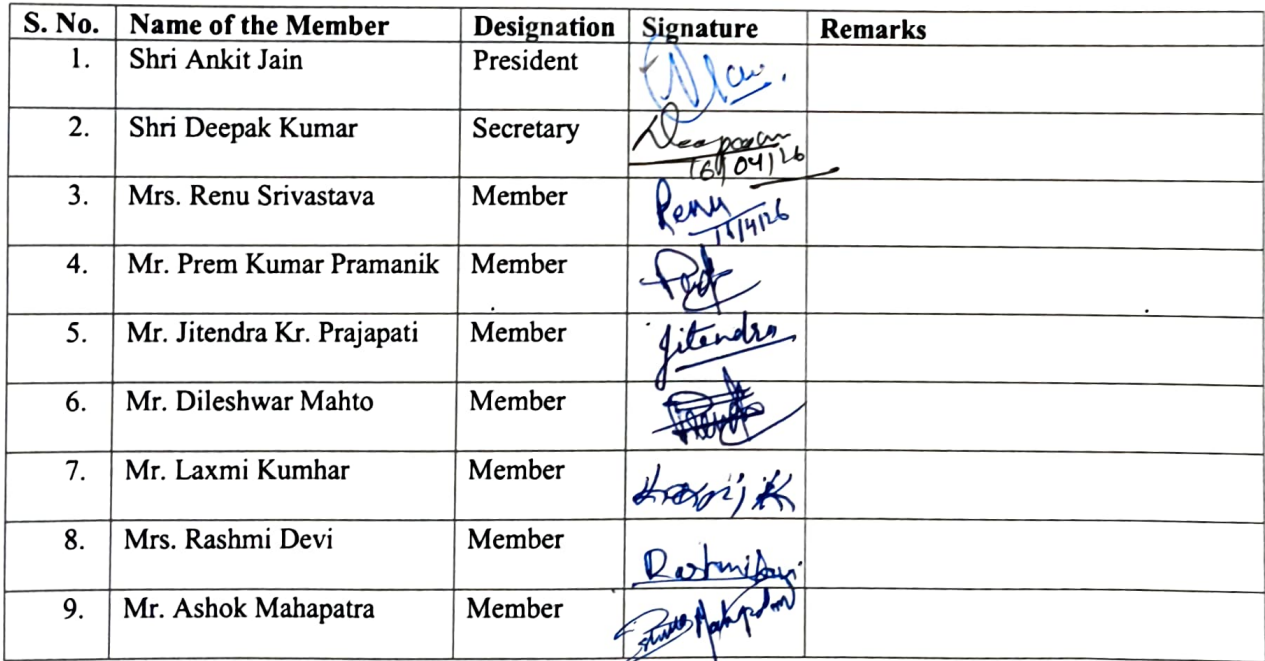 S. No. Name of the Member Designation Signature Remarks
1. Shri Ankit Jain President
2. Shri Deepak Kumar Secretary
16/04/26
3. Mrs. Renu Srivastava Member Renu
16/4/26
4. Mr. Prem Kumar Pramanik Member
5. Mr. Jitendra Kr. Prajapati Member Jitendra
6. Mr. Dileshwar Mahto Member
7. Mr. Laxmi Kumhar Member
8. Mrs. Rashmi Devi Member Rashmi Devi
9. Mr. Ashok Mahapatra Member